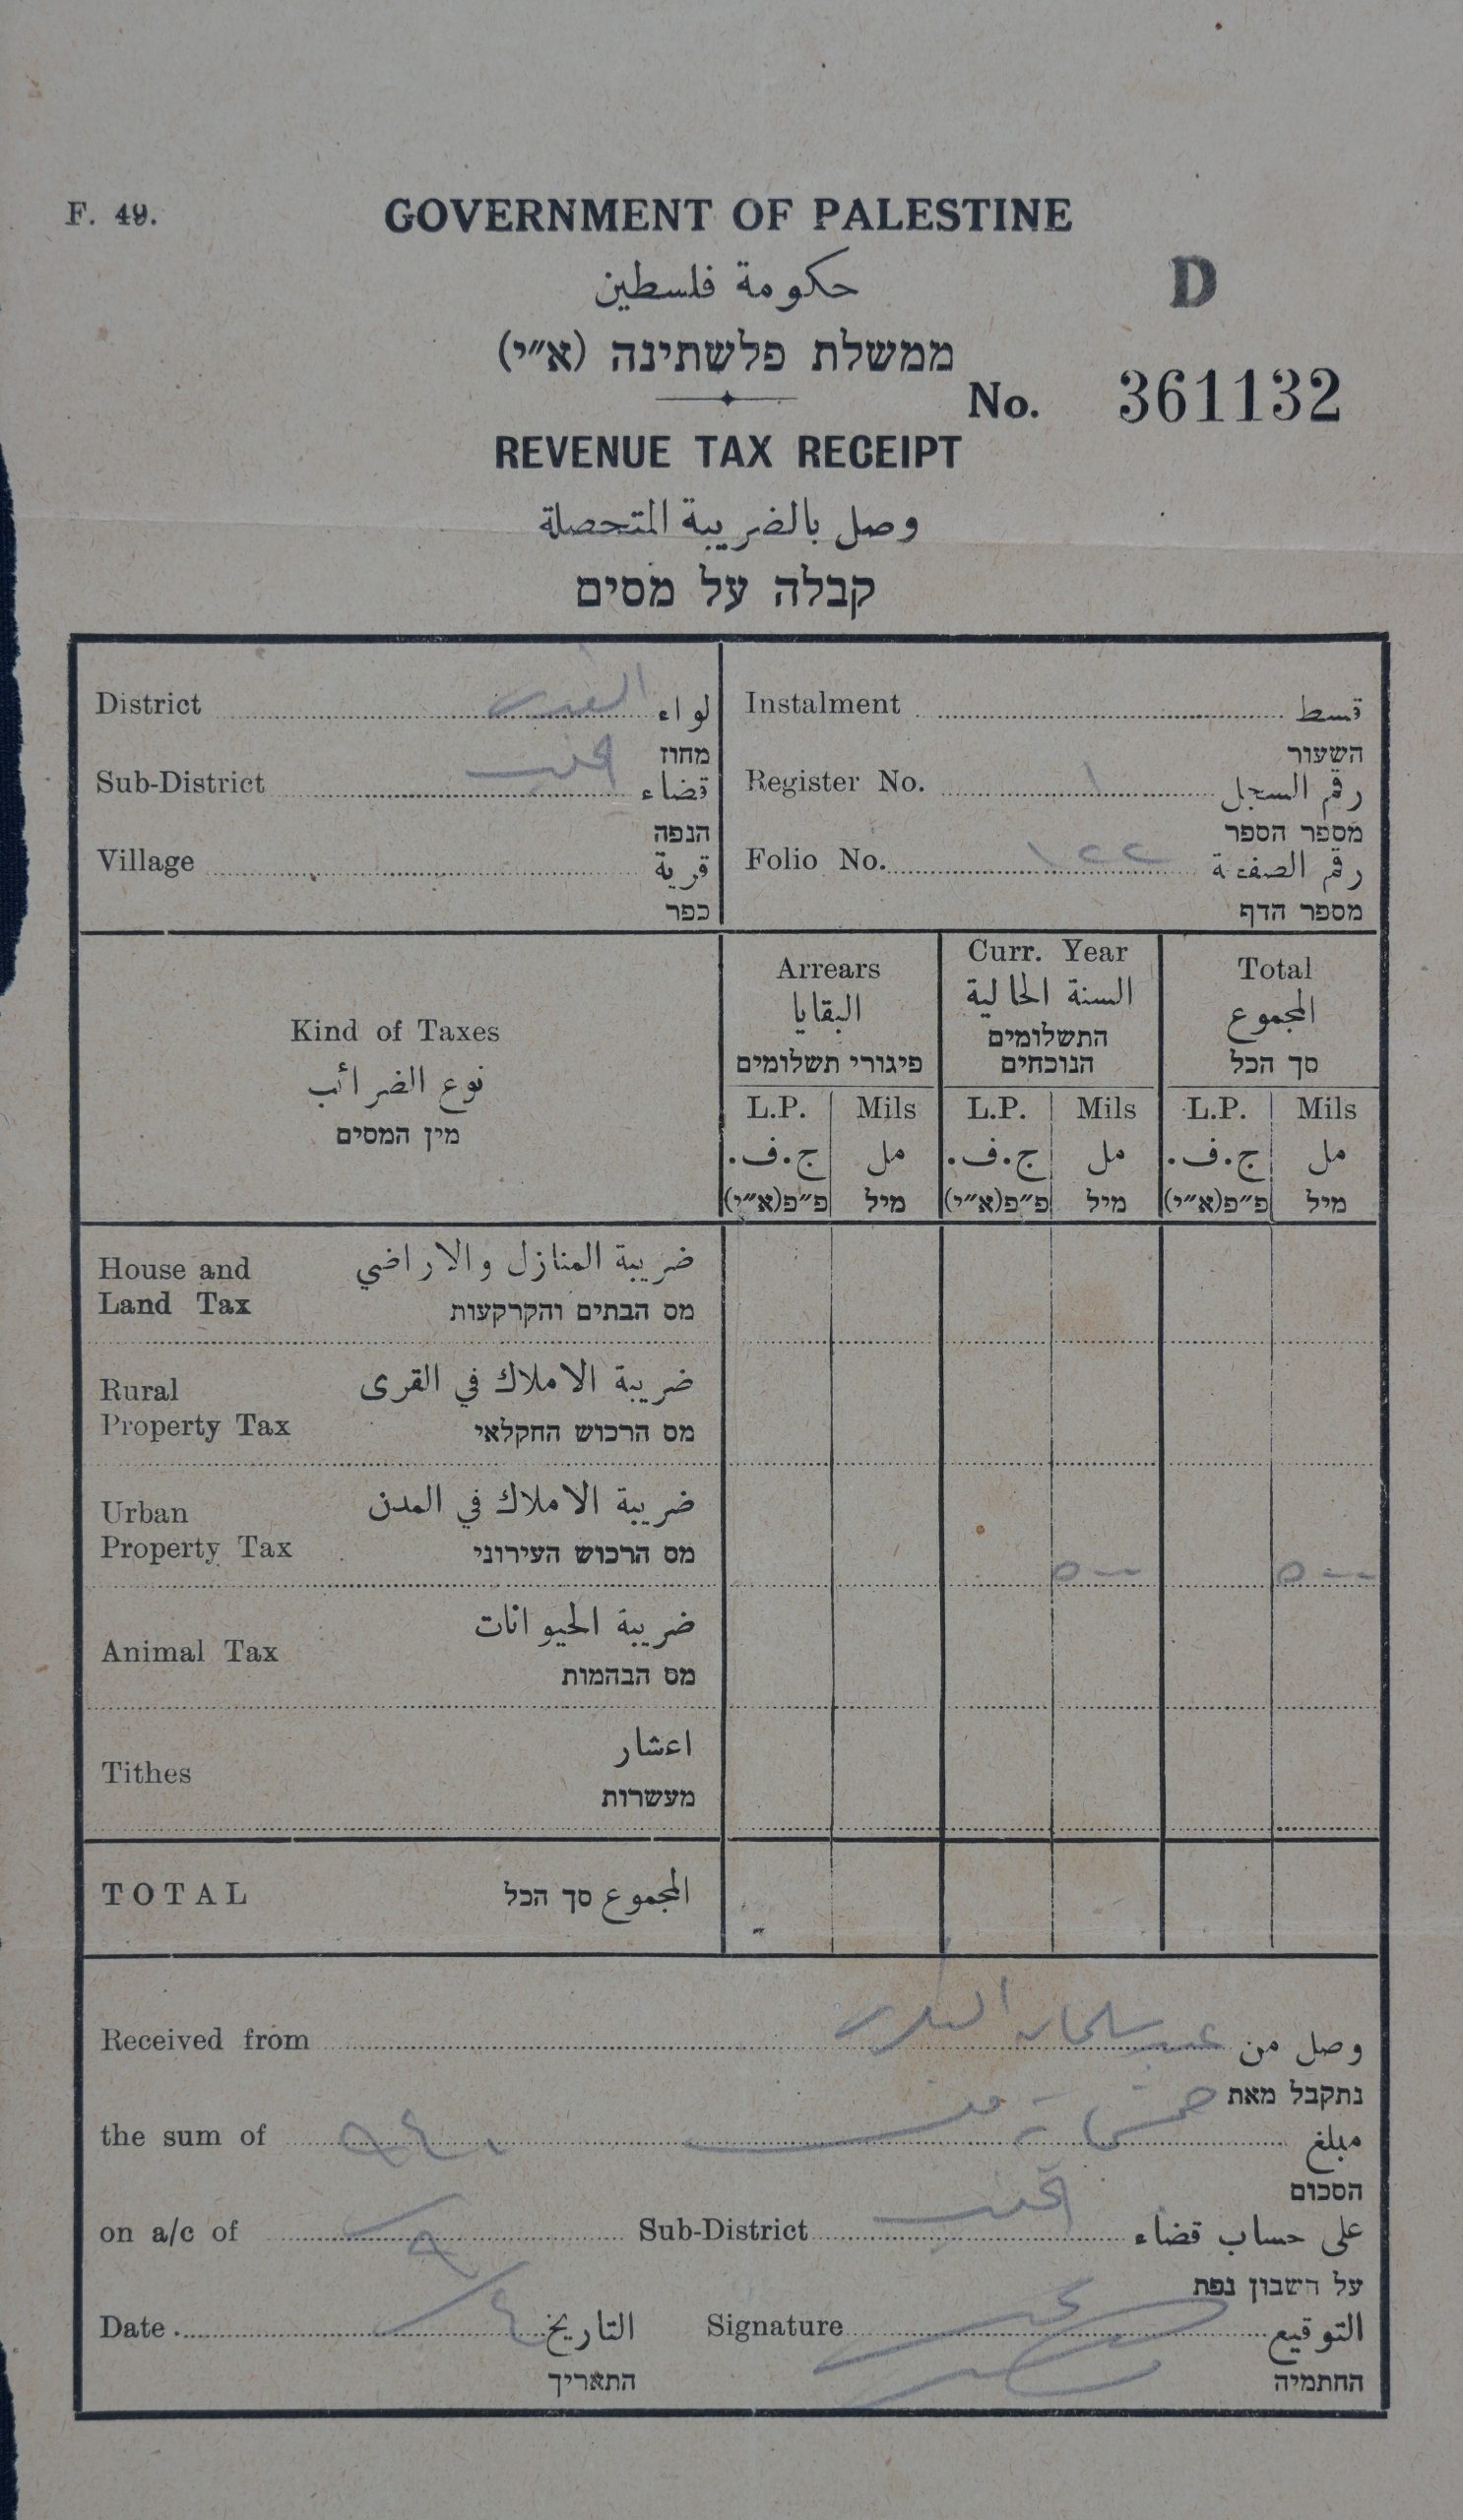 F. 49.
GOVERNMENT OF PALESTINE
حكومة فلسطين
D
ממשלת פלשתינה (א״י)
No. 361132
REVENUE TAX RECEIPT
وصل بالضريبة المتحصلة
קבלה על מסים
District القدس لواء
מחוז
Sub-District قضاء
הנפה
Village قرية
כפר
Instalment قسط
השעור
Register No. ١ رقم السجل
מספר הספר
Folio No. ١٢٢ رقم الصفحة
מספר הדף
Kind of Taxes
نوع الضرائب
מין המסים
Arrears
البقايا
פיגורי תשלומים
Curr. Year
السنة الحالية
התשלומים
הנוכחים
Total
المجموع
סך הכל
L.P. Mils L.P. Mils L.P. Mils
ج.ف. مل ج.ف. مل ج.ف. مل
פ״פ(א״י) מיל פ״פ(א״י) מיל פ״פ(א״י) מיל
House and ضريبة المنازل والاراضي
Land Tax מס הבתים והקרקעות
Rural ضريبة الاملاك في القرى
Property Tax מס הרכוש החקלאי
Urban ضريبة الاملاك في المدن
Property Tax מס הרכוש העירוני
٥٠٠ ٥٠٠
Animal Tax ضريبة الحيوانات
מס הבהמות
Tithes اعشار
מעשרות
TOTAL المجموع סך הכל
Received from وصل من
נתקבל מאת
the sum of مبلغ
הסכום
on a/c of Sub-District على حساب قضاء
על חשבון נפת
Date التاريخ Signature التوقيع
התאריך החתמיה